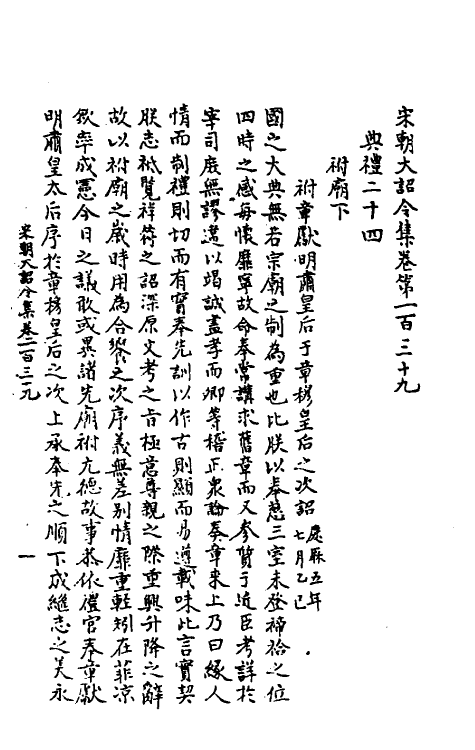 宋朝大詔令集卷第一百三十九
典禮二十四
祔廟下
祔章獻明肅皇后于章穆皇后之次詔 慶曆五年七月乙巳
國之大典無若宗廟之制為重也比朕以奉慈三室未登禘祫之位
四時之感每懷靡寧故命奉常講求舊章而又參質于近臣考詳於
宰司庶無謬違以竭誠盡孝而卿等稽正衆論奏章來上乃曰緣人
情而制禮則切而有實奉先訓以作古則顯而易遵載味此言實契
朕志祗覽祥符之詔深原文考之旨極意尊親之際重興升降之辭
故以祔廟之歲時用為合饗之次序義無差別情靡重輕矧在菲凉
欽率成憲今日之議敢或異諸先廟祔元德故事恭依禮官奉章獻
明肅皇太后序於章穆皇后之次上承奉先之順下成繼志之美永
宋朝大詔令集卷一百三十九
一